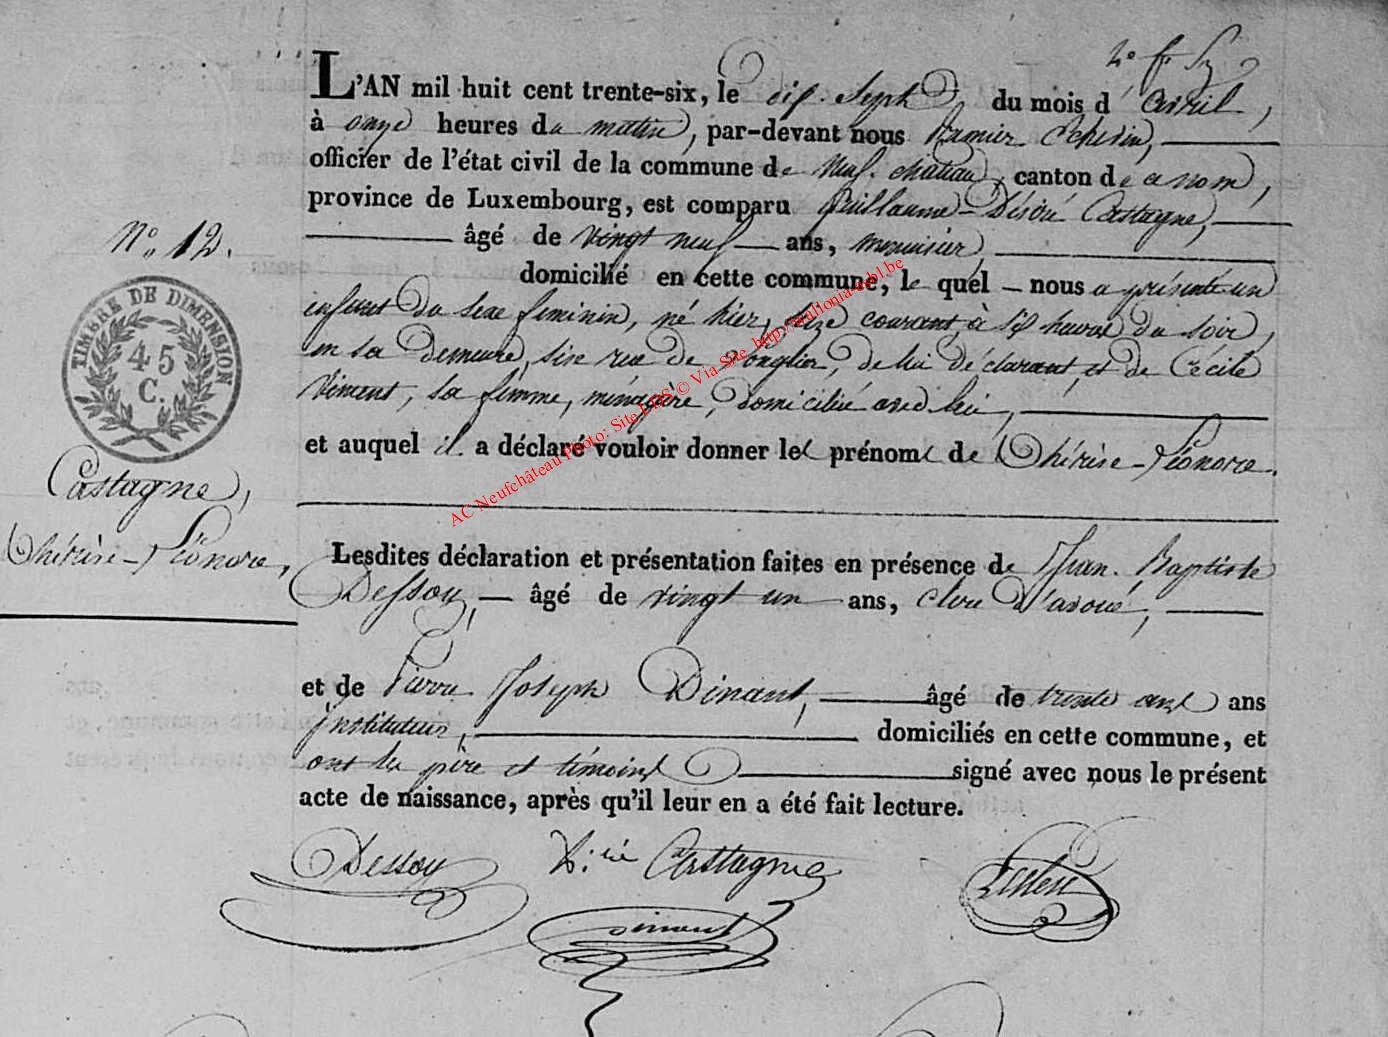 L'AN mil huit cent trente-six, le dix-Sept, du mois d'avril,
à onze heures du matin, par-devant nous
officier de l'état civil de la commune de Neuf-château, canton de ce nom,
province de Luxembourg, est comparu Guillaume-Désiré Castagne,
âgé de vingt neuf ans, menuisier,
N° 12.
domicilié en cette commune, le quel nous a présenté un
enfant du sexe feminin, né hier, seize courant à six heures du soir,
TIMBRE DE DIMENSION
45
C.
en sa demeure, sise rue de , de lui déclarant, et de Cécile
Viment, sa femme, ménagère, domiciliée avec lui,
et auquel il a déclaré vouloir donner les prénoms de Thérèse-Léonore.
AC Neufchâteau Photo: Site LDS © Via Site http://wallonia-asbl.be
Castagne,
Thérèse-Léonore,
Lesdites déclaration et présentation faites en présence de Jean-Baptiste
Dessoy, âgé de vingt un ans, clerc d'avoué,
et de Pierre Joseph Dinant, âgé de trente ans ans
instituteur, domiciliés en cette commune, et
ont les père et témoins signé avec nous le présent
acte de naissance, après qu'il leur en a été fait lecture.
Dessoy Castagne
Dinant